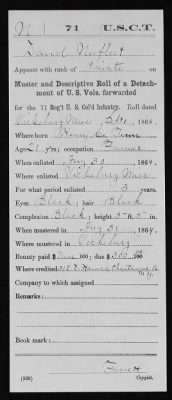 71 U.S.C.T.
Appears with rank of Private on
Muster and Descriptive Roll of a Detach-
ment of U. S. Vols. forwarded
for the 71 Reg't U. S. Col'd Infantry. Roll dated
Vicksburg Miss, 186 .
Where born Tenn
Age 21 y'rs; occupation Farmer
When enlisted Aug 30, 1864.
Where enlisted Vicksburg Miss.
For what period enlisted 3 years.
Eyes Black; hair Black
Complexion Black; height 5 ft. 5 in.
When mustered in Aug 31, 1864.
Where mustered in Vicksburg
Bounty paid $ 100; due $ 300 100
Where credited
Company to which assigned
Remarks:
Book mark:
(339) Copyist.